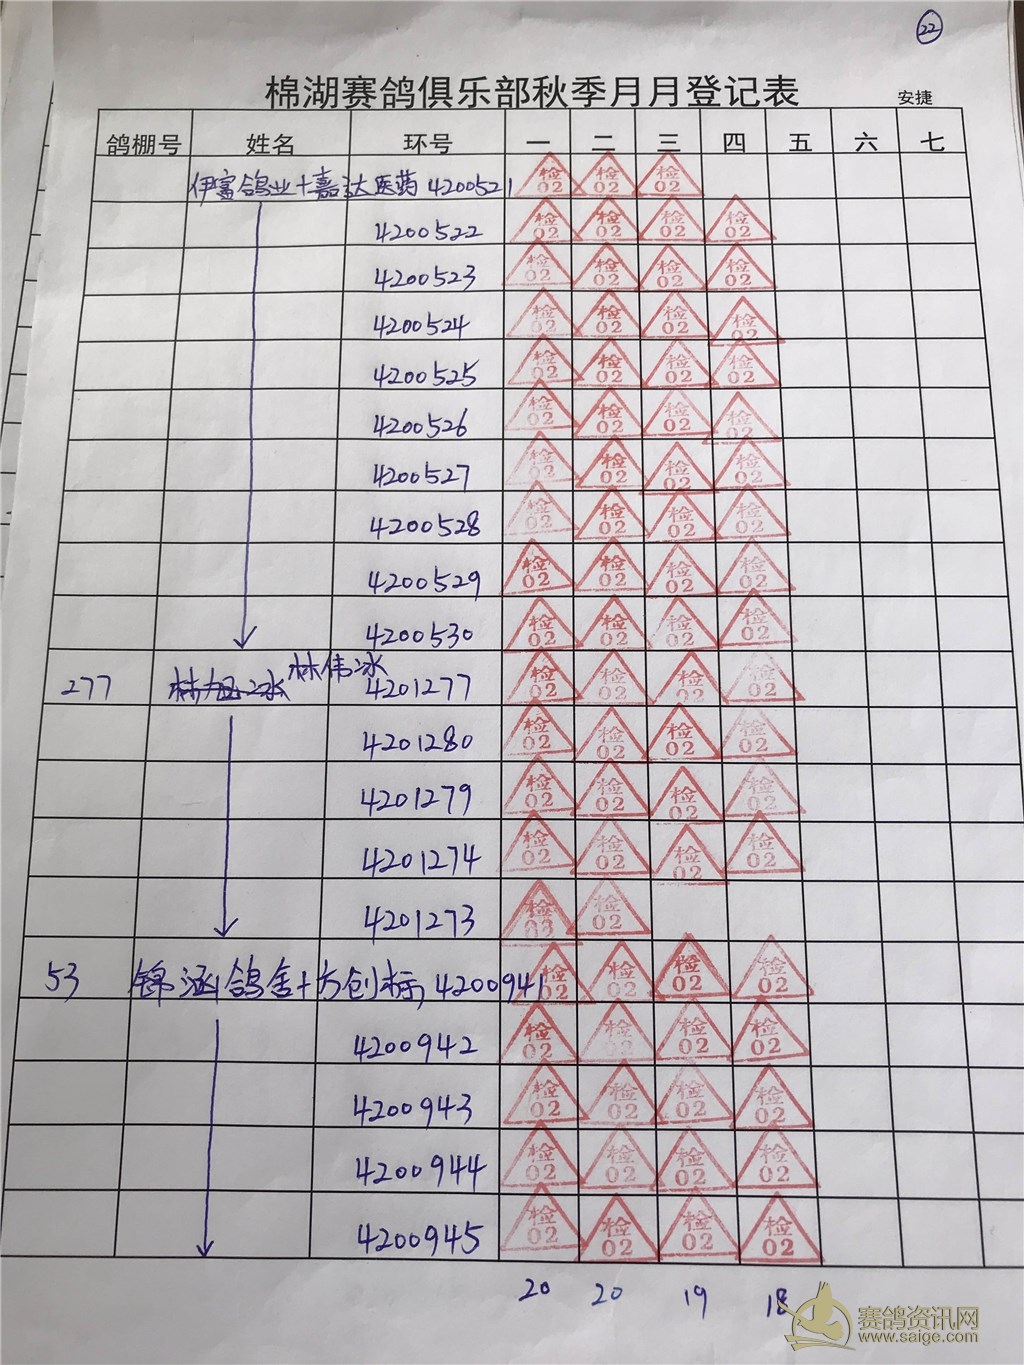 22
棉湖赛鸽俱乐部秋季月月登记表 安捷
鸽棚号 姓名 环号 一 二 三 四 五 六 七
伊富鸽业+嘉达医药 4200521 检02 检02 检02
4200522 检02 检02 检02 检02
4200523 检02 检02 检02 检02
4200524 检02 检02 检02 检02
4200525 检02 检02 检02 检02
4200526 检02 检02 检02 检02
4200527 检02 检02 检02 检02
4200528 检02 检02 检02 检02
4200529 检02 检02 检02 检02
4200530 检02 检02 检02 检02
277 林伟冰 4201277 检02 检02 检02 检02
4201280 检02 检02 检02 检02
4201279 检02 检02 检02 检02
4201274 检02 检02 检02 检02
4201273 检02 检02
53 锦涵鸽舍+方创标 4200941 检02 检02 检02 检02
4200942 检02 检02 检02 检02
4200943 检02 检02 检02 检02
4200944 检02 检02 检02 检02
4200945 检02 检02 检02 检02
20 20 19 18
赛鸽资讯网
www.saige.com